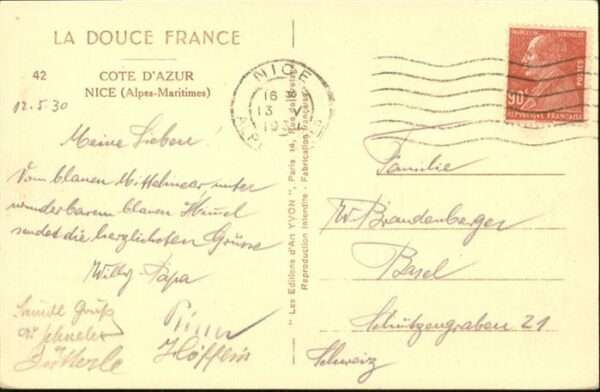 LA DOUCE FRANCE
42
COTE D'AZUR
NICE (Alpes-Maritimes)
12.5.30
Meine Lieben!
Vom blauen Mittelmeer unter
wunderbarem blauen Himmel
sendet die herzlichsten Grüsse
Willy Papa
Höfflin
" Les Editions d'Art YVON ", Paris 14, Rue
Reproduction Interdite - Fabrication Française
NICE
16
13 V
90c
POSTES
REPUBLIQUE FRANÇAISE
Familie
Brandenberger
Basel
Schützengraben 21
Schweiz